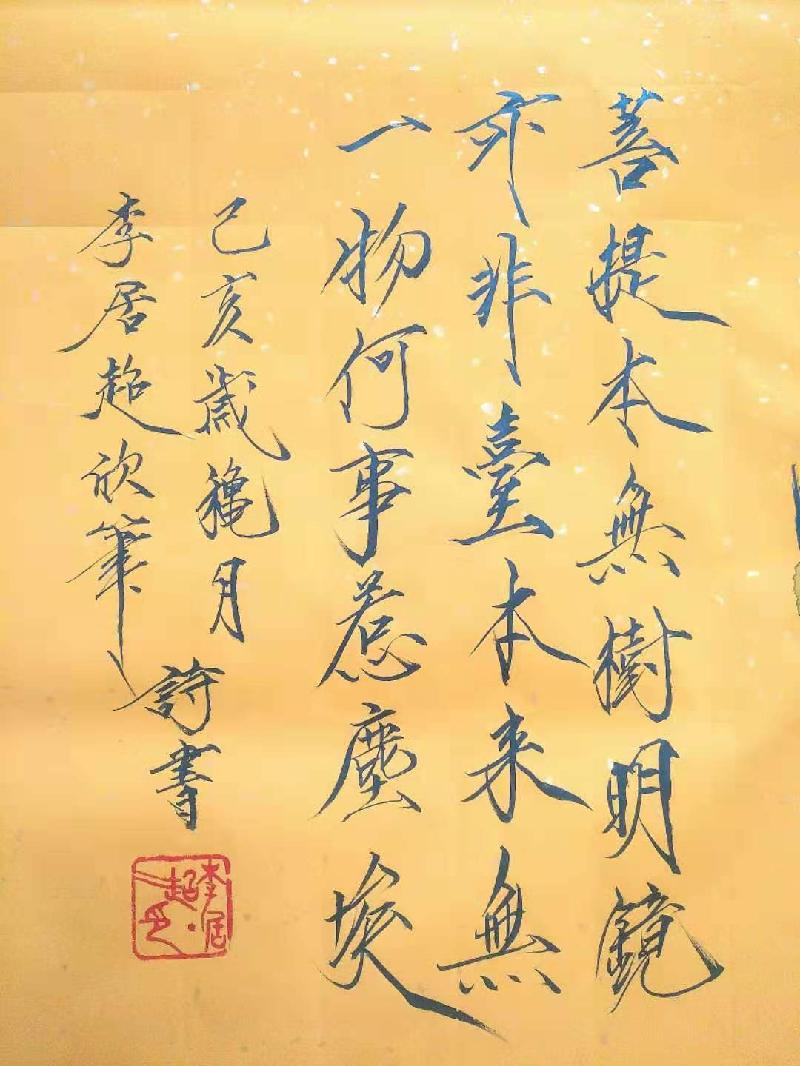 菩提本無樹明鏡
亦非臺本来無
一物何事惹塵埃
己亥歲穐月
詩書
李居超欣筆
李居超印